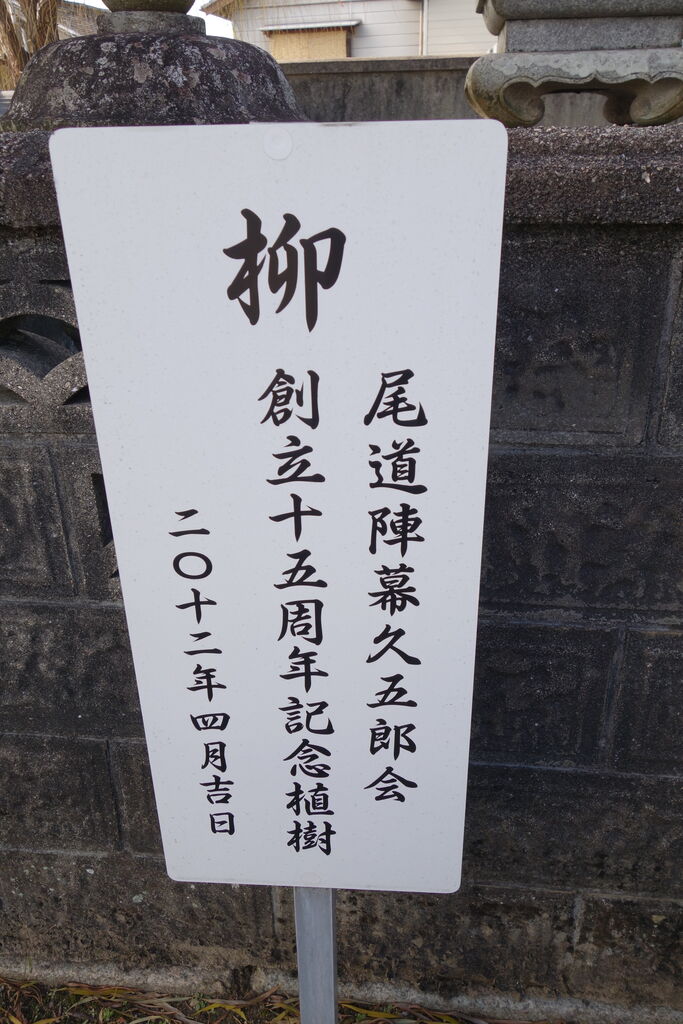 柳
尾道陣幕久五郎会
創立十五周年記念植樹
二〇十二年四月吉日